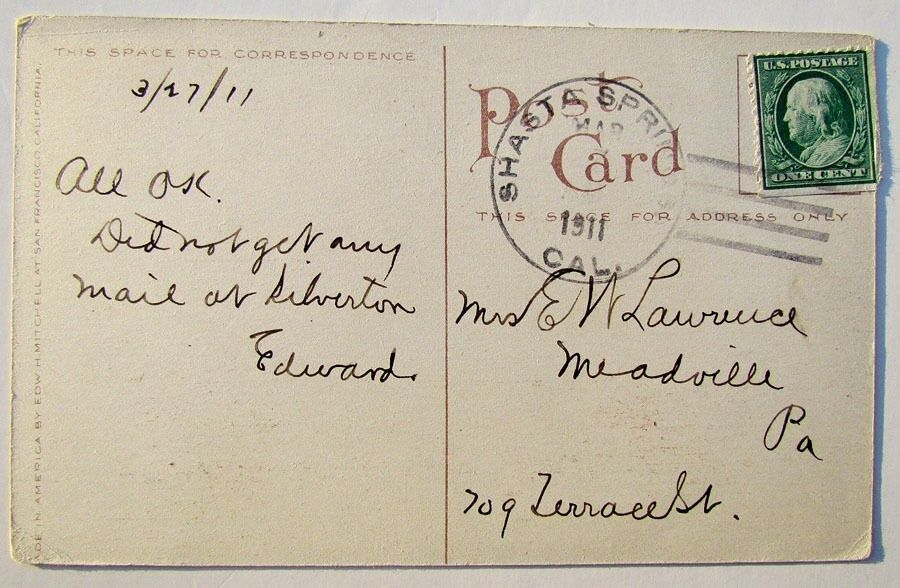 THIS SPACE FOR CORRESPONDENCE
3/27/11
All OK.
Did not get any
mail at Silverton
Edward.
DE IN AMERICA BY EDW H MITCHELL AT SAN FRANCISCO CALIFORNIA.
Post
Card
THIS SPACE FOR ADDRESS ONLY
SHASTA SPRI
MAR
1911
CAL.
U.S. POSTAGE
ONE CENT
Mrs E W Lawrence
Meadville
Pa
709 Terrace St.